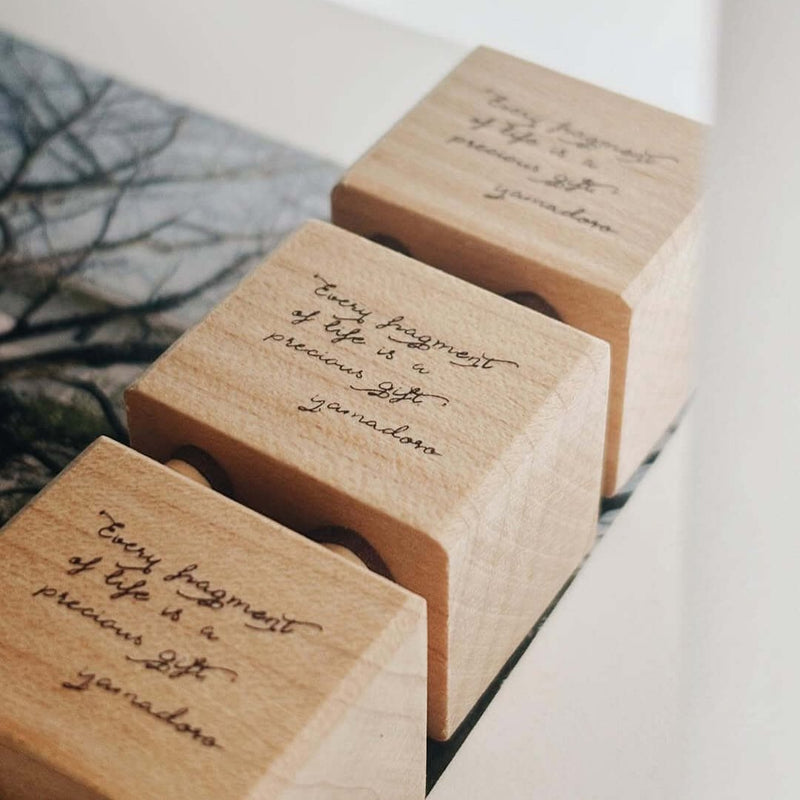 "Every fragment
of life is a
precious gift."
yamadoro
"Every fragment
of life is a
precious gift."
yamadoro
"Every fragment
of life is a
precious gift."
yamadoro